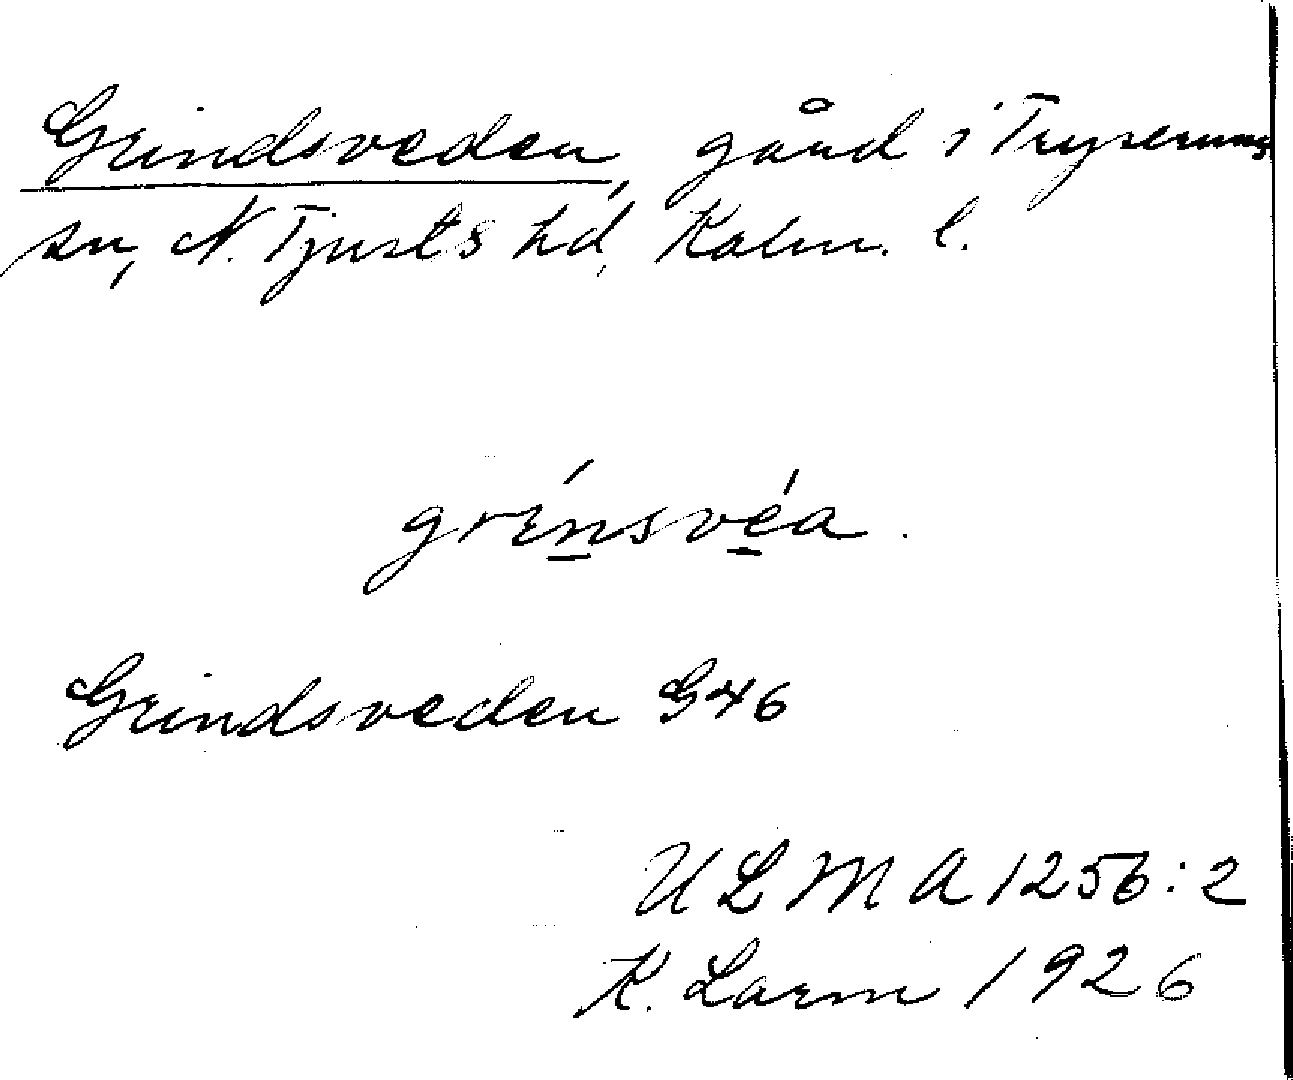 Grindsveden, gård i Tryserums
sn, N. Tjusts hd, Kalm. l.
grínsvéa.
Grindsveden G46
ULMA 1256:2
K. Larm 1926